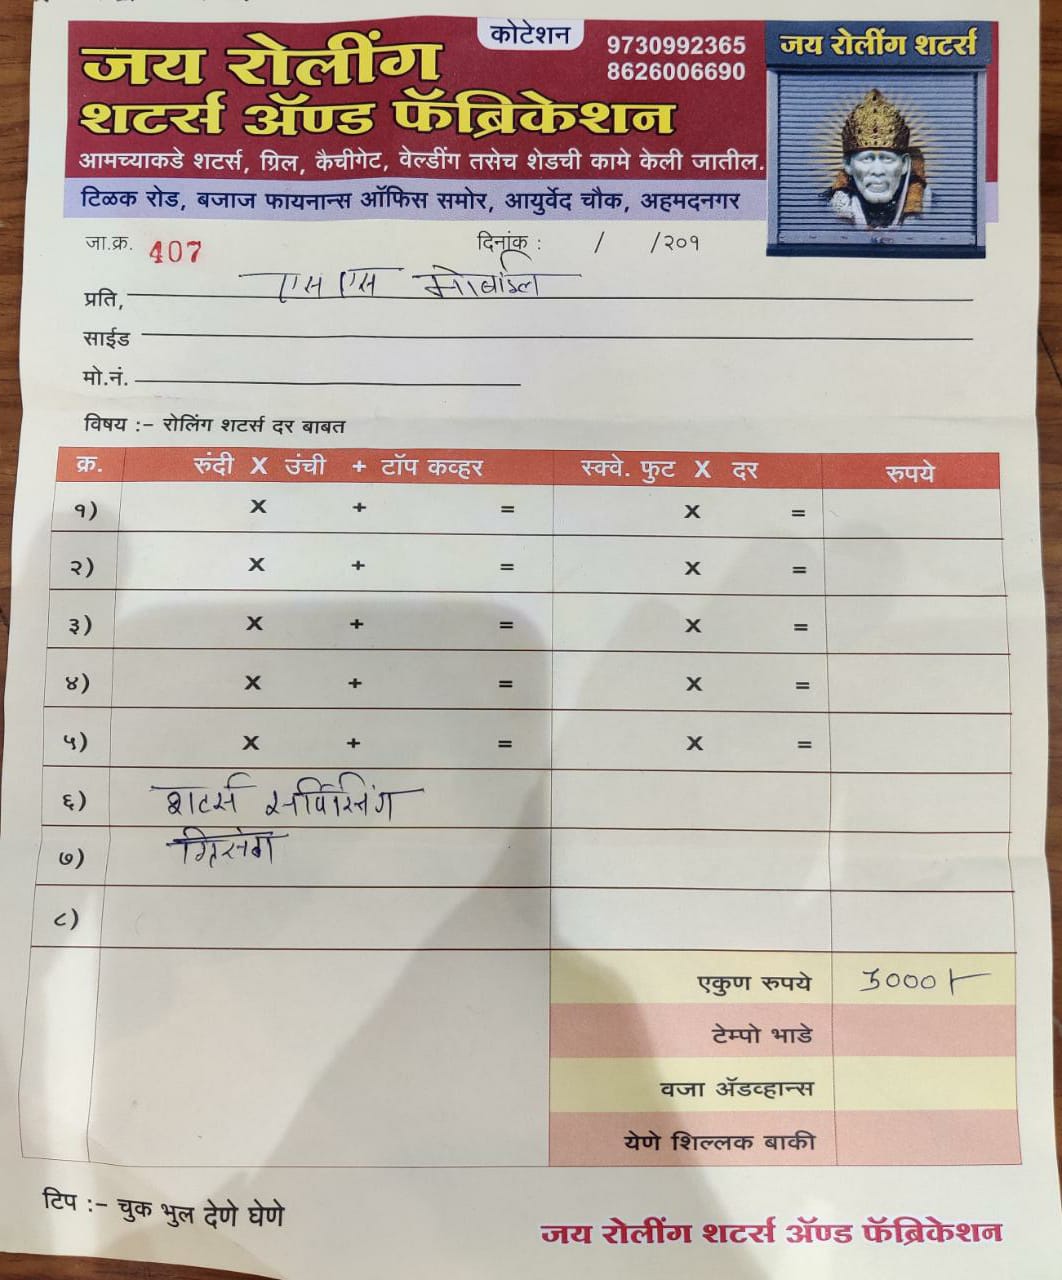 कोटेशन
जय रोलींग
शटर्स ॲण्ड फॅब्रिकेशन
9730992365
8626006690
जय रोलींग शटर्स
आमच्याकडे शटर्स, ग्रिल, कैचीगेट, वेल्डींग तसेच शेडची कामे केली जातील.
टिळक रोड, बजाज फायनान्स ऑफिस समोर, आयुर्वेद चौक, अहमदनगर
जा.क्र. 407 दिनांक : / /२०१
प्रति, एस एस मोबाईल
साईड
मो.नं.
विषय :- रोलिंग शटर्स दर बाबत
क्र. रुंदी X उंची + टॉप कव्हर स्क्वे. फुट X दर रुपये
१) X + = X =
२) X + = X =
३) X + = X =
४) X + = X =
५) X + = X =
६) शटर्स सर्विसिंग
७)
८)
एकुण रुपये 3000/-
टेम्पो भाडे
वजा ॲडव्हान्स
येणे शिल्लक बाकी
टिप :- चुक भुल देणे घेणे
जय रोलींग शटर्स ॲण्ड फॅब्रिकेशन